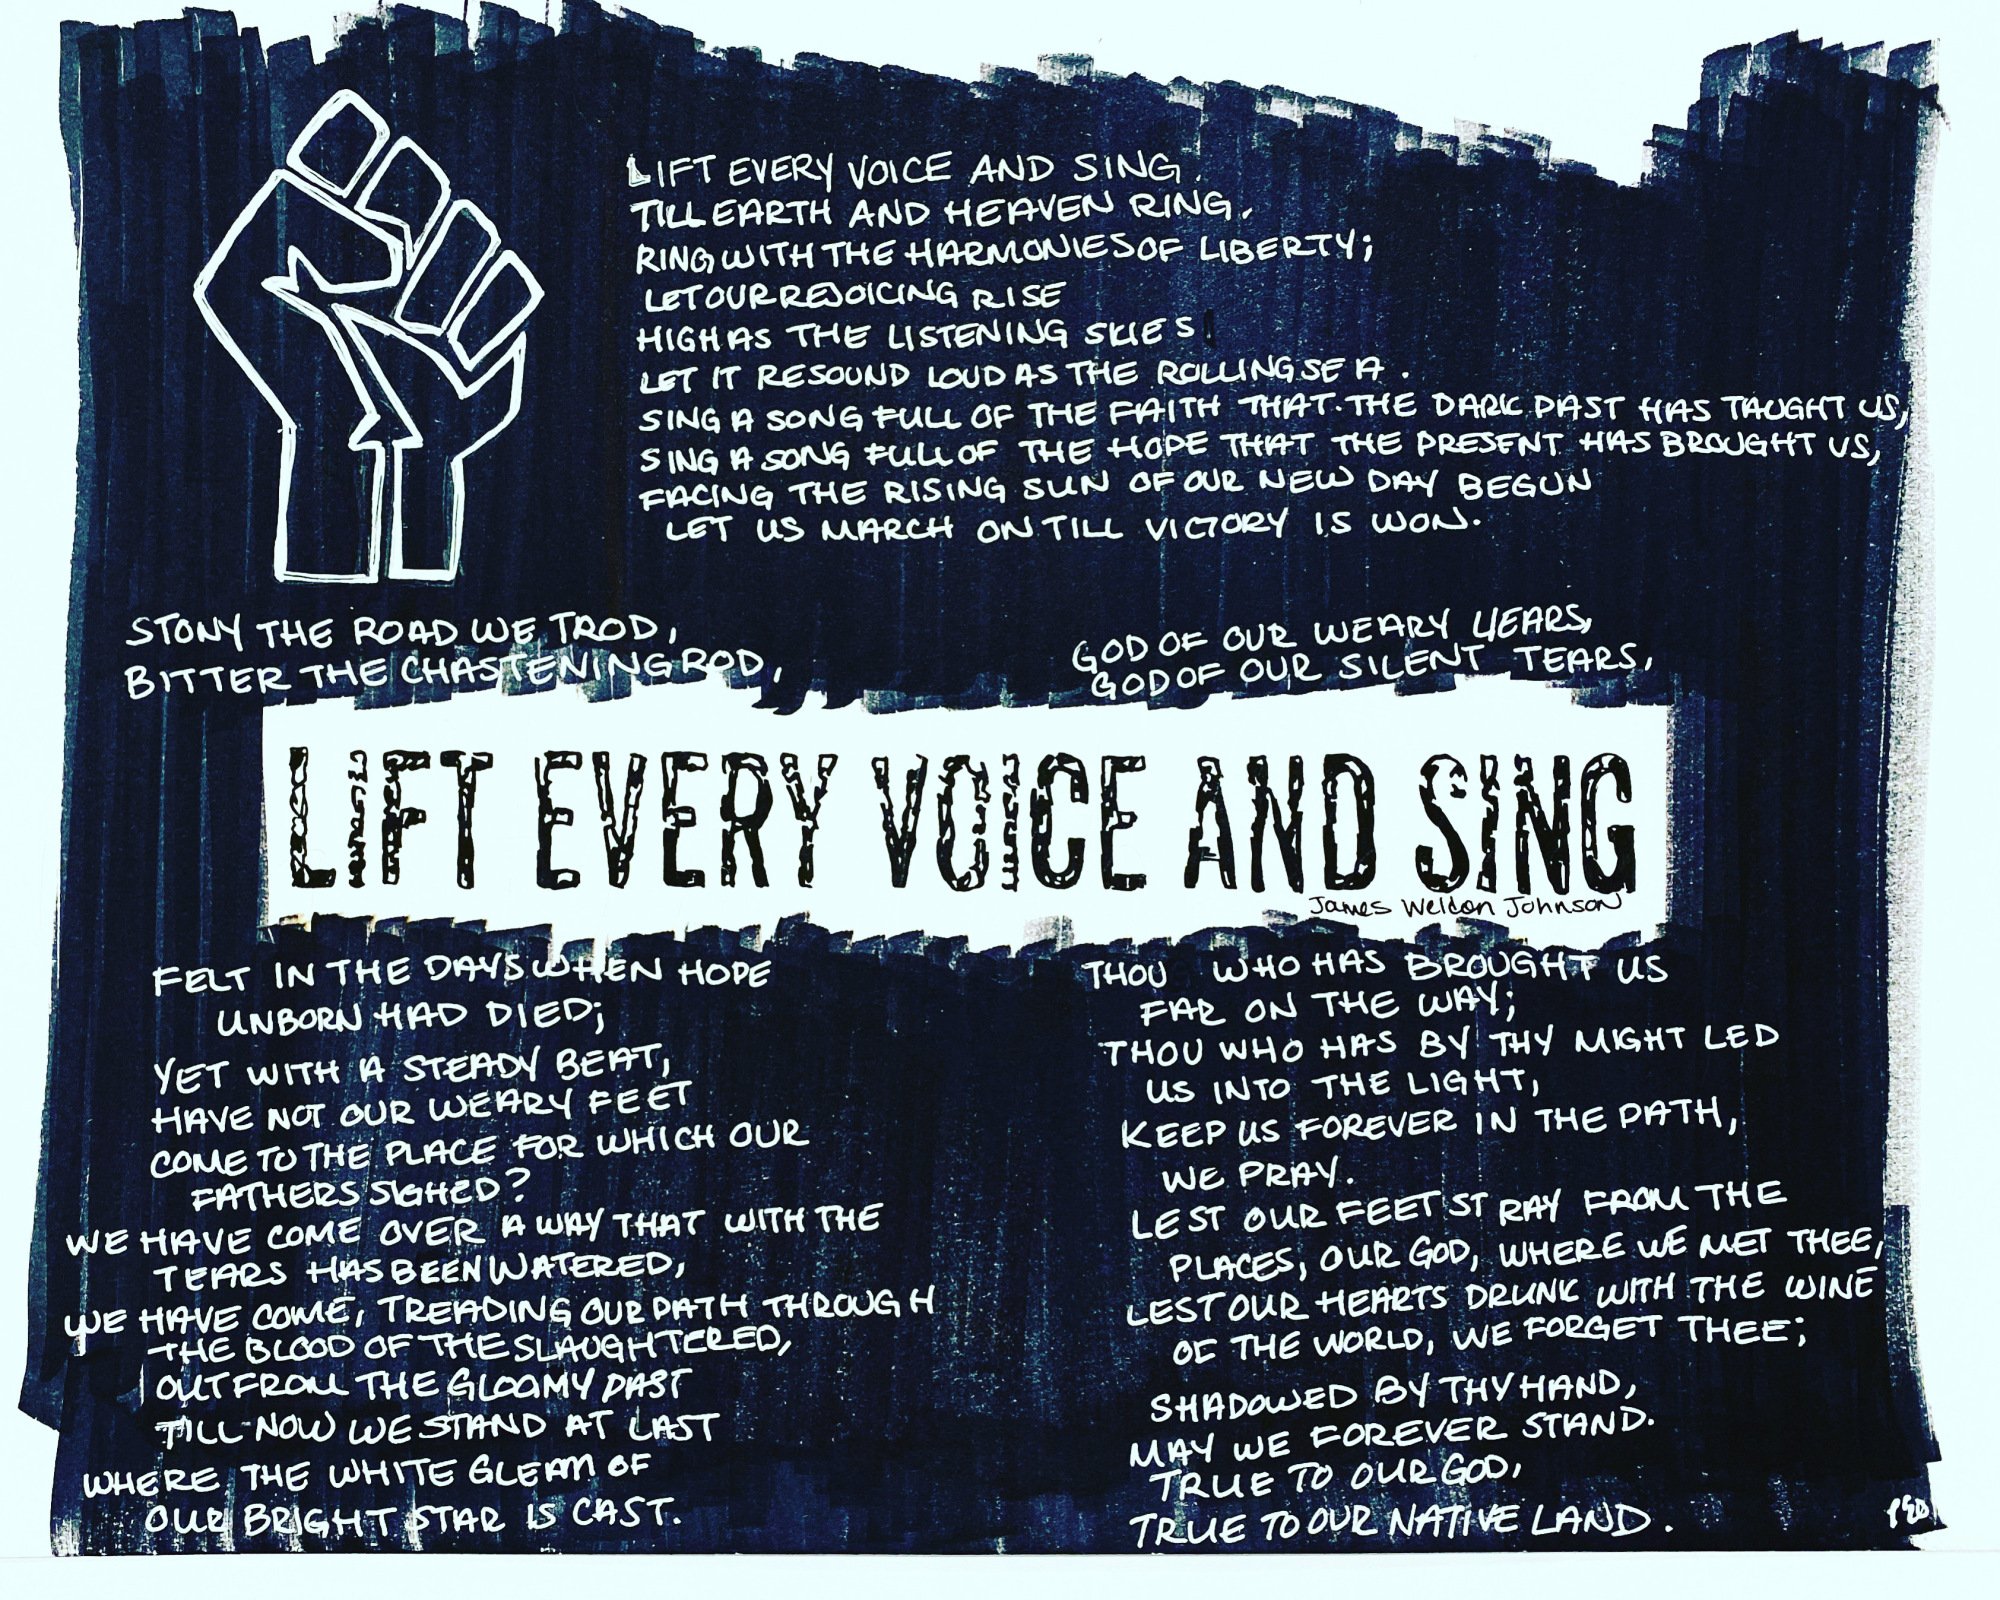 LIFT EVERY VOICE AND SING.
TILL EARTH AND HEAVEN RING,
RING WITH THE HARMONIES OF LIBERTY;
LET OUR REJOICING RISE
HIGH AS THE LISTENING SKIES
LET IT RESOUND LOUD AS THE ROLLING SEA.
SING A SONG FULL OF THE FAITH THAT THE DARK PAST HAS TAUGHT US,
SING A SONG FULL OF THE HOPE THAT THE PRESENT HAS BROUGHT US,
FACING THE RISING SUN OF OUR NEW DAY BEGUN
LET US MARCH ON TILL VICTORY IS WON.
STONY THE ROAD WE TROD,
BITTER THE CHASTENING ROD,
GOD OF OUR WEARY YEARS,
GOD OF OUR SILENT TEARS,
LIFT EVERY VOICE AND SING
James Weldon Johnson
FELT IN THE DAYS WHEN HOPE
UNBORN HAD DIED;
YET WITH A STEADY BEAT,
HAVE NOT OUR WEARY FEET
COME TO THE PLACE FOR WHICH OUR
FATHERS SIGHED?
WE HAVE COME OVER A WAY THAT WITH THE
TEARS HAS BEEN WATERED,
WE HAVE COME, TREADING OUR PATH THROUGH
THE BLOOD OF THE SLAUGHTERED,
OUT FROM THE GLOOMY PAST
TILL NOW WE STAND AT LAST
WHERE THE WHITE GLEAM OF
OUR BRIGHT STAR IS CAST.
THOU WHO HAS BROUGHT US
FAR ON THE WAY;
THOU WHO HAS BY THY MIGHT LED
US INTO THE LIGHT,
KEEP US FOREVER IN THE PATH,
WE PRAY.
LEST OUR FEET STRAY FROM THE
PLACES, OUR GOD, WHERE WE MET THEE,
LEST OUR HEARTS DRUNK WITH THE WINE
OF THE WORLD, WE FORGET THEE;
SHADOWED BY THY HAND,
MAY WE FOREVER STAND.
TRUE TO OUR GOD,
TRUE TO OUR NATIVE LAND.